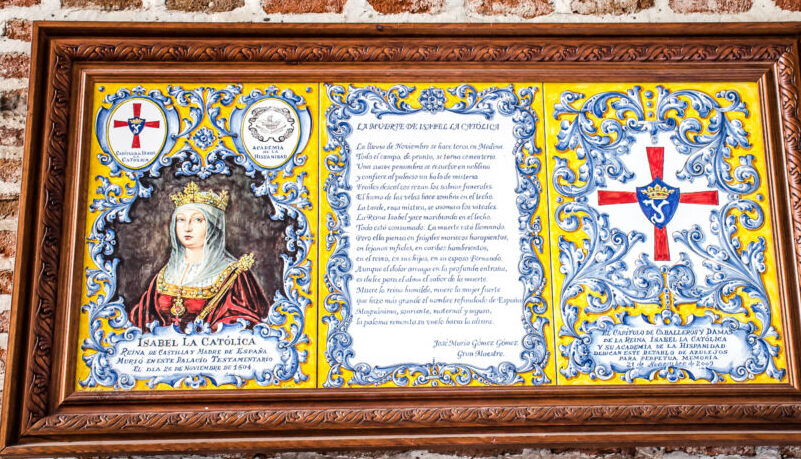 CAPÍTULO DE DAMAS
DE LA
CATÓLICA
ACADEMIA
DE LA
HISPANIDAD
ISABEL LA CATÓLICA
REINA DE CASTILLA Y MADRE DE ESPAÑA
MURIÓ EN ESTE PALACIO TESTAMENTARIO
EL DIA 26 DE NOVIEMBRE DE 1504
LA MUERTE DE ISABEL LA CATÓLICA
La lluvia de Noviembre se hace tersa en Medina
Todo el campo, de pronto, se torna cementerio.
Una suave penumbra se revuelve en neblina
y confiere al palacio un halo de misterio
Frailes descalzos rezan los salmos funerales.
El humo de las velas hace sombra en el techo.
La tarde, rosa mística, se asoma a los vitrales.
La Reina Isabel yace moribunda en el lecho.
Todo está consumado. La muerte esta llamando
Pero ella piensa en frágiles moriscos harapientos,
en lejanos infieles, en caribes hambrientos,
en el reino, en sus hijas, en su esposo Fernando.
Aunque el dolor arraiga en la profunda entraña,
es dulce para el alma el sabor de la muerte.
Muere la reina humilde, muere la mujer fuerte
que hizo más grande el nombre refundado de España
Magnánima, sonriente, maternal y segura,
la paloma remonta su vuelo hacia la altura.
José María Gómez Gómez
Gran Maestre.
EL CAPÍTULO DE CABALLEROS Y DAMA
DE LA REINA ISABEL LA CATÓLICA
Y SU ACADEMIA DE LA HISPANIDAD
DEDICAN ESTE RETABLO DE AZULEJOS
PARA PERPETUA MEMORIA
21 de Noviembre de 2009